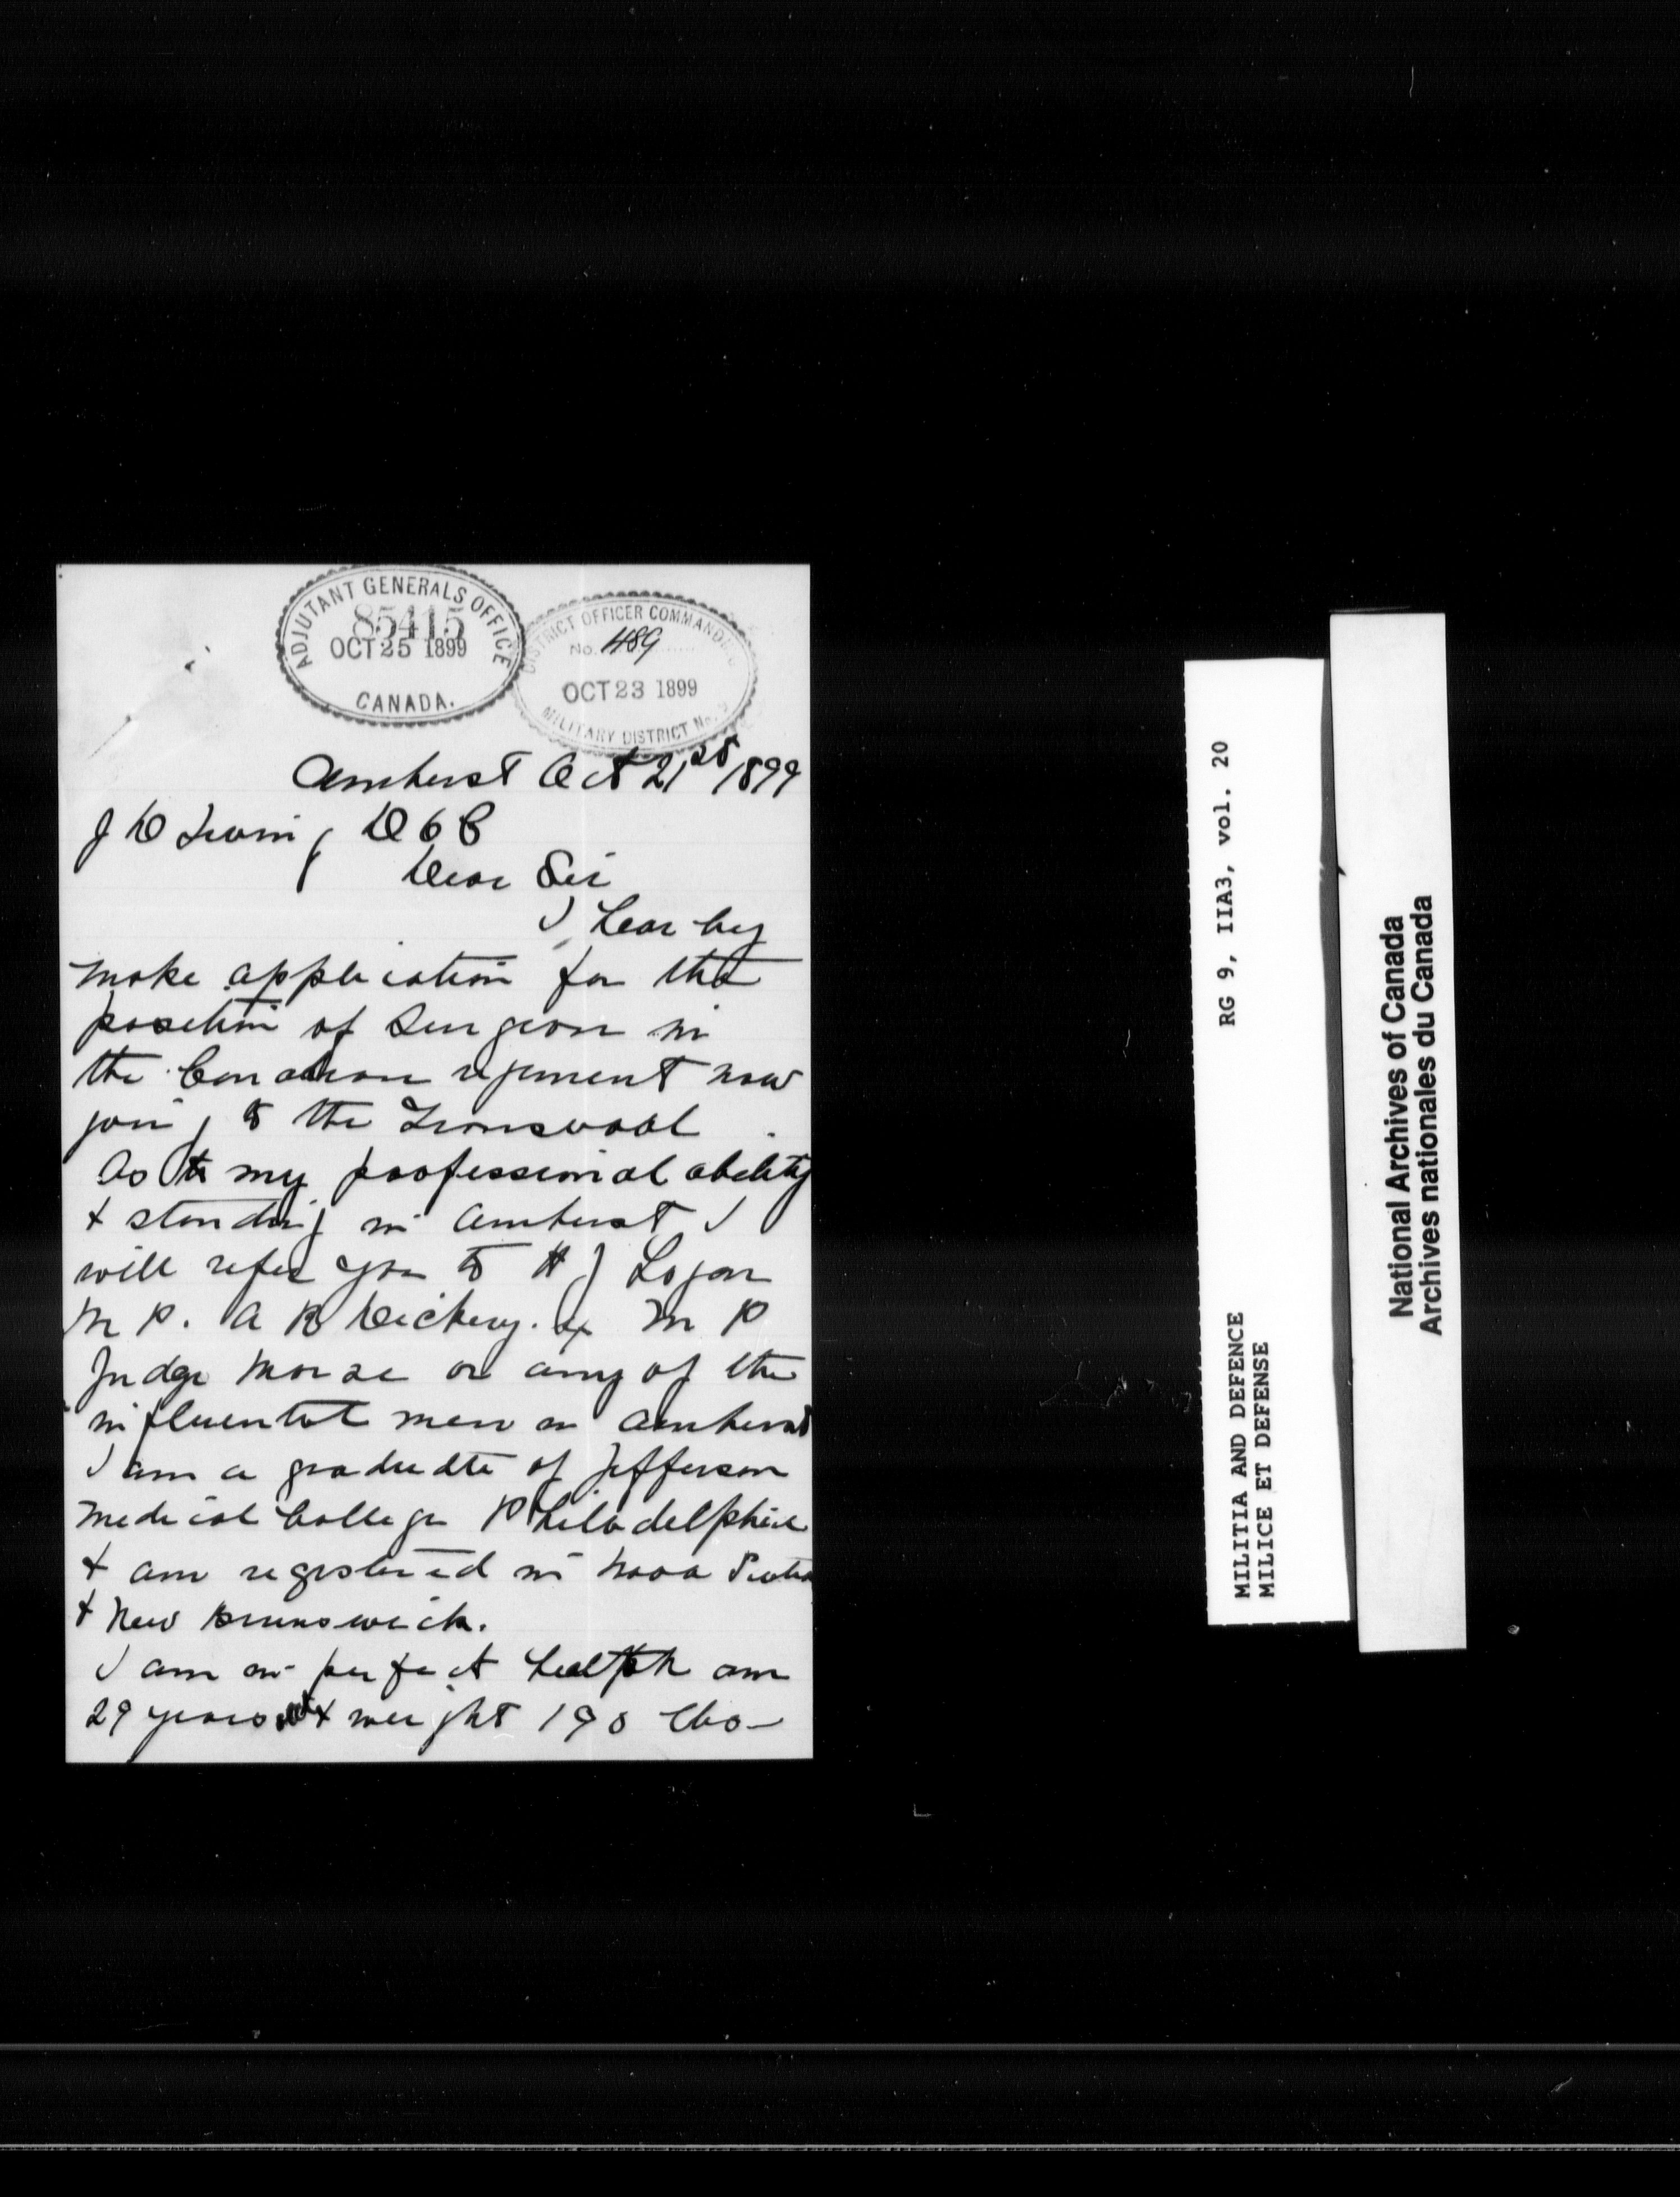 ADJUTANT GENERALS OFFICE
85415
OCT 25 1899
CANADA.
DISTRICT OFFICER COMMANDING
No. 489
OCT 23 1899
MILITARY DISTRICT No.
Amherst Oct 21st 1899
J D Irving D O C
Dear Sir
I hear by
make application for the
position of Surgeon in
the Canadian regiment now
going to the Transvaal
As to my professional ability
+ standing in Amherst I
will refer you to H J Logan
M P. A R Dickey. ex M P
Judge Morse or any of the
influential men in Amherst
I am a graduate of Jefferson
Medical College Philadelphia
+ am registered in Nova Scotia
+ New Brunswick.
I am in perfect health am
29 years + weight 190 lbs-
RG 9, IIA3, vol. 20
MILITIA AND DEFENCE
MILICE ET DEFENSE
National Archives of Canada
Archives nationales du Canada